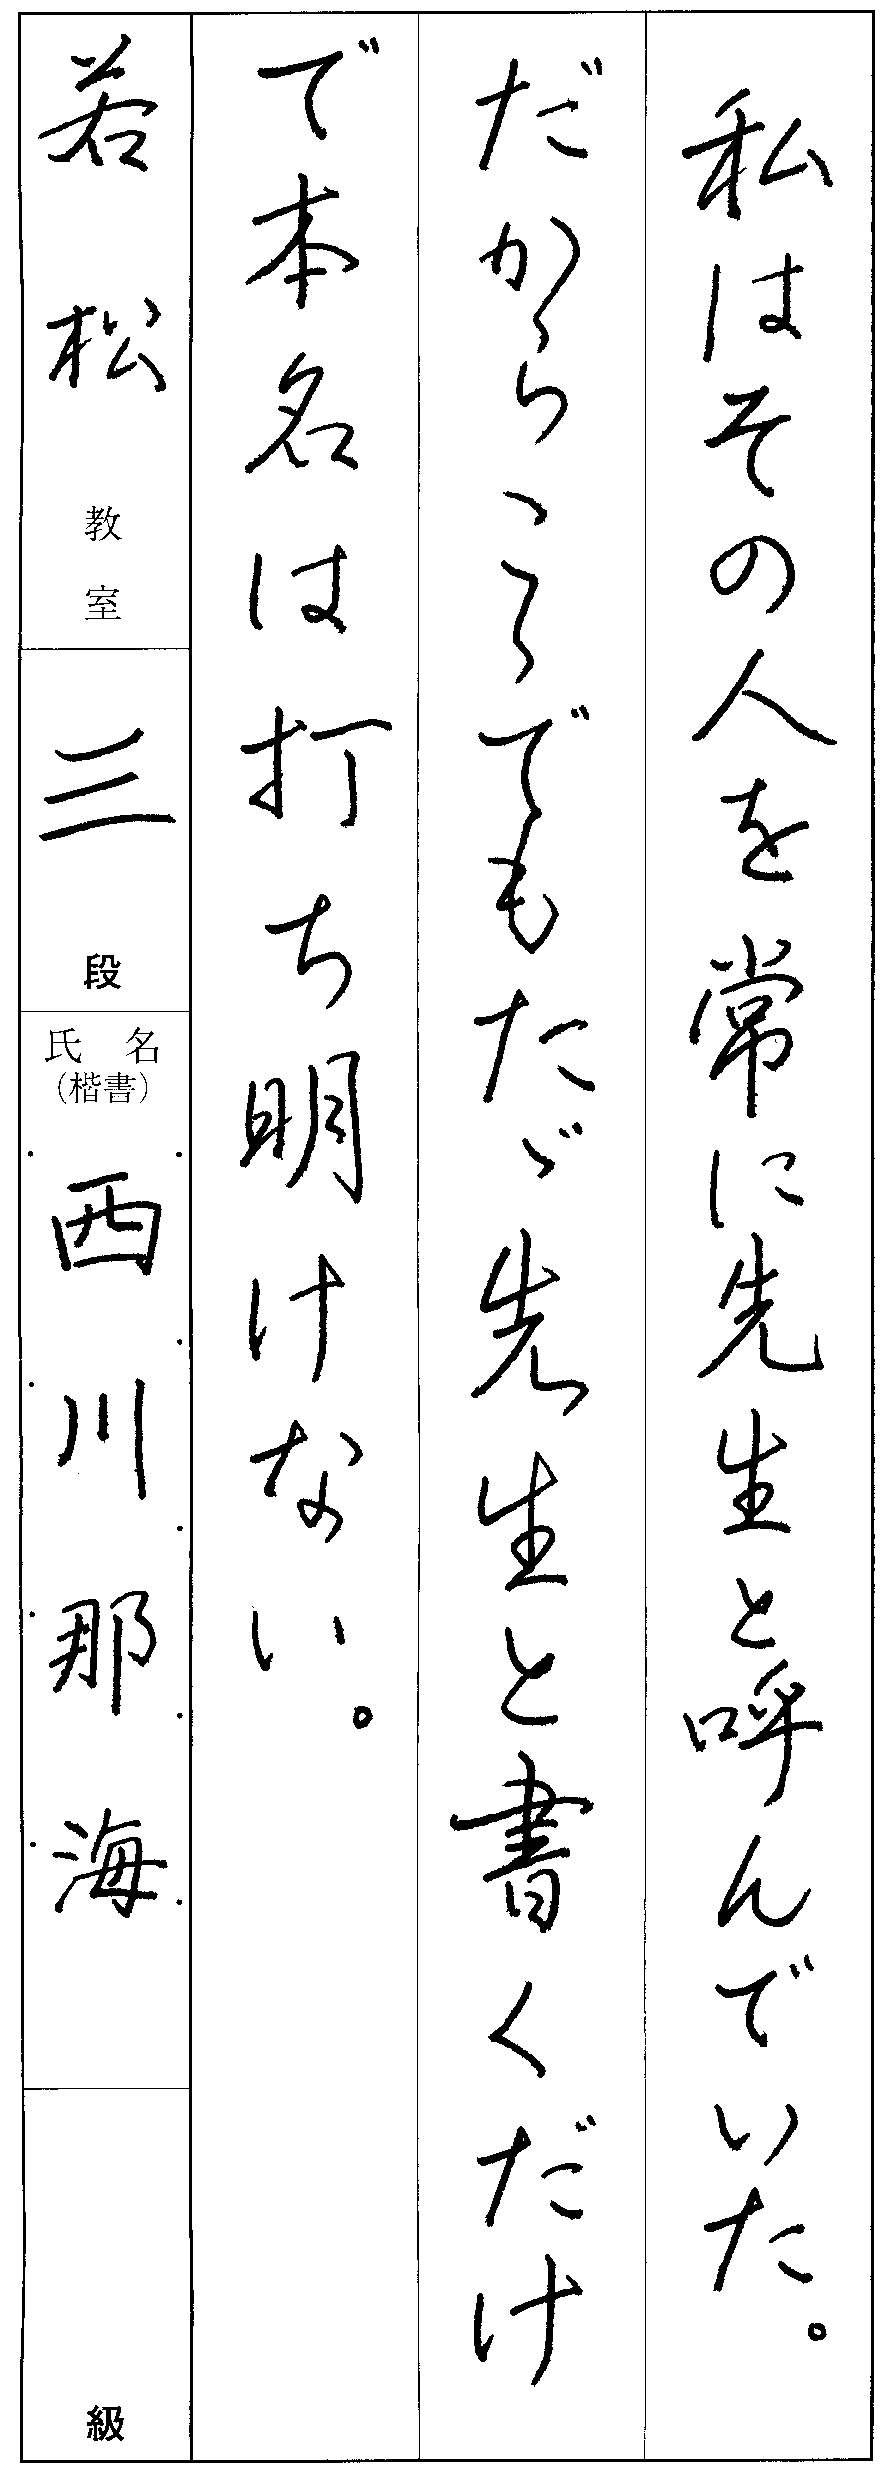 私はその人を常に先生と呼んでいた。
だから、こゝでもたゞ先生と書くだけ
で本名は打ち明けない。
若松教室
三段
氏名
(楷書)
西川那海
級